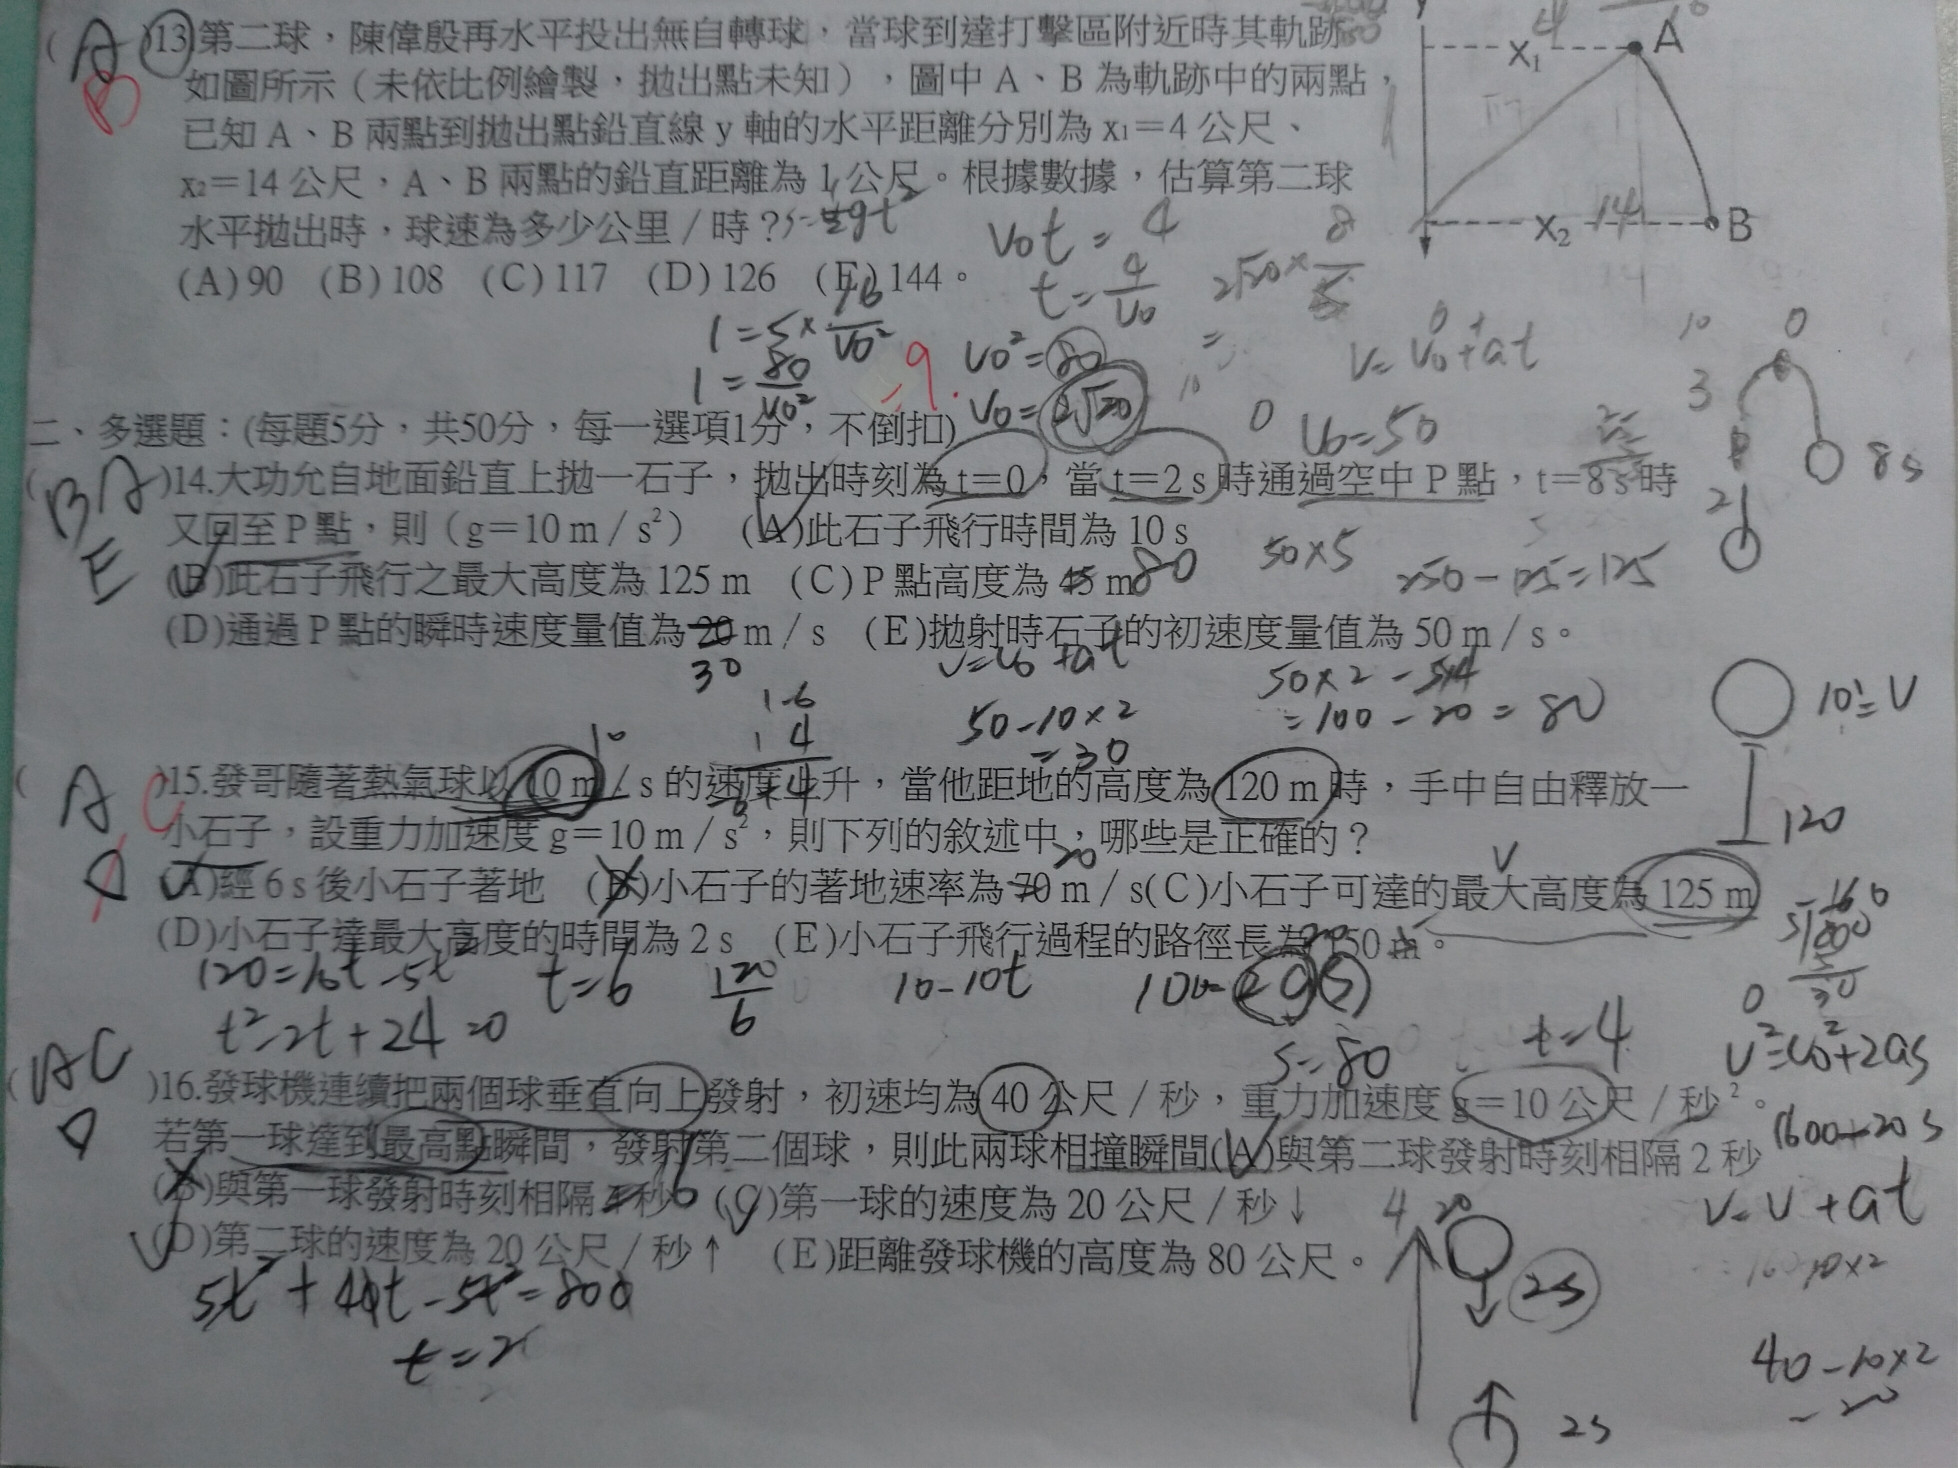 (A)13.第二球，陳偉殷再水平投出無自轉球，當球到達打擊區附近時其軌跡
B 如圖所示（未依比例繪製，拋出點未知），圖中 A、B 為軌跡中的兩點，
已知 A、B 兩點到拋出點鉛直線 y 軸的水平距離分別為 x₁＝4 公尺、
x₂＝14 公尺，A、B 兩點的鉛直距離為 1 公尺。根據數據，估算第二球
水平拋出時，球速為多少公里／時？
(A) 90 (B) 108 (C) 117 (D) 126 (E) 144。
y
x₁ 4 A
x₂ 14 B
V₀t = 4
t = 4/V₀
1 = 5 × 16/V₀²
1 = 80/V₀²
V₀² = 80
V₀ = 2√20
-9.
V = V₀ + at
V₀ = 50
二、多選題：(每題5分，共50分，每一選項1分，不倒扣)
(BAE)14.大功允自地面鉛直上拋一石子，拋出時刻為 t＝0，當 t＝2 s 時通過空中 P 點，t＝8 s 時
又回至 P 點，則（g＝10 m／s²） (A)此石子飛行時間為 10 s
(B)此石子飛行之最大高度為 125 m (C) P 點高度為 45 m 80
(D)通過 P 點的瞬時速度量值為 20 m／s (E)拋射時石子的初速度量值為 50 m／s。
30
50×5
250-125=125
8s
V=V₀+at
50-10×2
=30
50×2-5×4
=100-20=80
10=V
120
(A C)15.發哥隨著熱氣球以 10 m／s 的速度上升，當他距地的高度為 120 m 時，手中自由釋放一
小石子，設重力加速度 g＝10 m／s²，則下列的敘述中，哪些是正確的？
(A)經 6 s 後小石子著地 (B)小石子的著地速率為 70 m／s(C)小石子可達的最大高度為 125 m
(D)小石子達最大高度的時間為 2 s (E)小石子飛行過程的路徑長為 150 m。
120=10t-5t²
t²-2t+24=0
t=6
120/6
10-10t
S=80
t=4
V²=V₀²+2as
(AC D)16.發球機連續把兩個球垂直向上發射，初速均為 40 公尺／秒，重力加速度 g＝10 公尺／秒²。
若第一球達到最高點瞬間，發射第二個球，則此兩球相撞瞬間(A)與第二球發射時刻相隔 2 秒
(B)與第一球發射時刻相隔 4 秒 6 (C)第一球的速度為 20 公尺／秒↓
(D)第二球的速度為 20 公尺／秒↑ (E)距離發球機的高度為 80 公尺。
5t²+40t-5t²=80
t=2
1600-20s
V=V+at
10×2
2s
40-10×2
2s